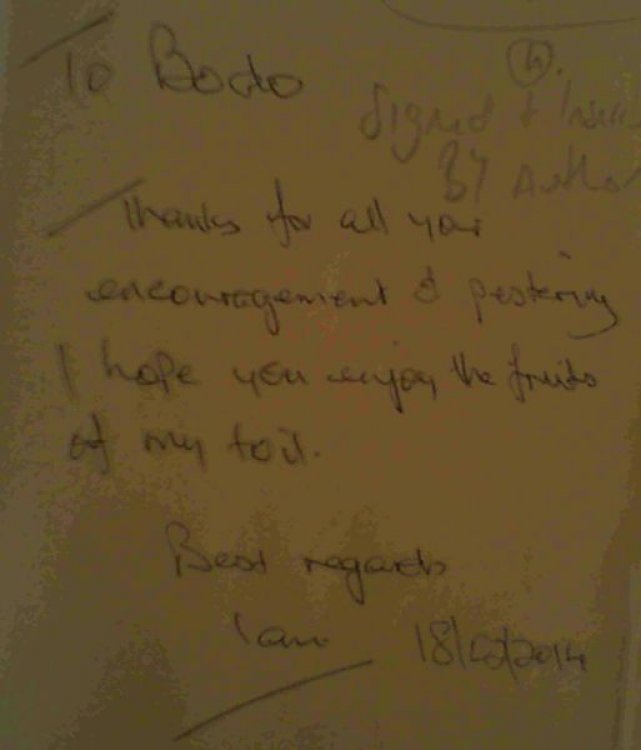 To Bodo
(h).
Signed +
By Author
Thanks for all your
encouragement & pestering
I hope you enjoy the fruits
of my toil.
Best regards
Ian 18/ /2014